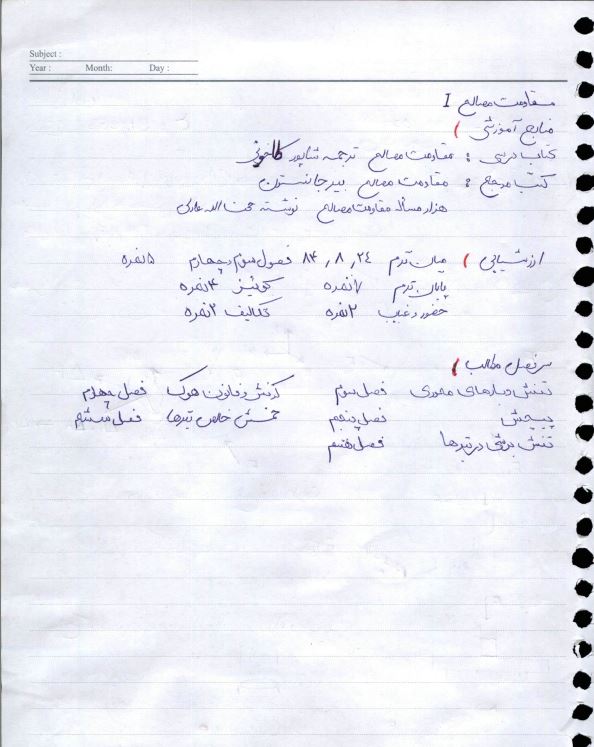 Subject :
Year : Month: Day :
مقاومت مصالح I
منابع آموزشی )
کتاب درسی : مقاومت مصالح ترجمه شاپور طاحونی
کتب مرجع : مقاومت مصالح بیر جانسترن
هزار مسأله مقاومت مصالح نوشته
ارزشیابی ) میان ترم ۲۴ ر ۸ ر ۸۴ فصول سوم و چهارم ۵ نمره
پایان ترم ۷ نمره کوئیز ۴ نمره
حضور و غیاب ۲ نمره تکالیف ۲ نمره
سرفصل مطالب )
تنش و بارهای محوری فصل سوم کرنش و قانون هوک فصل چهارم
پیچش فصل پنجم خمش خالص تیرها فصل ششم
تنش برشی در تیرها فصل هفتم